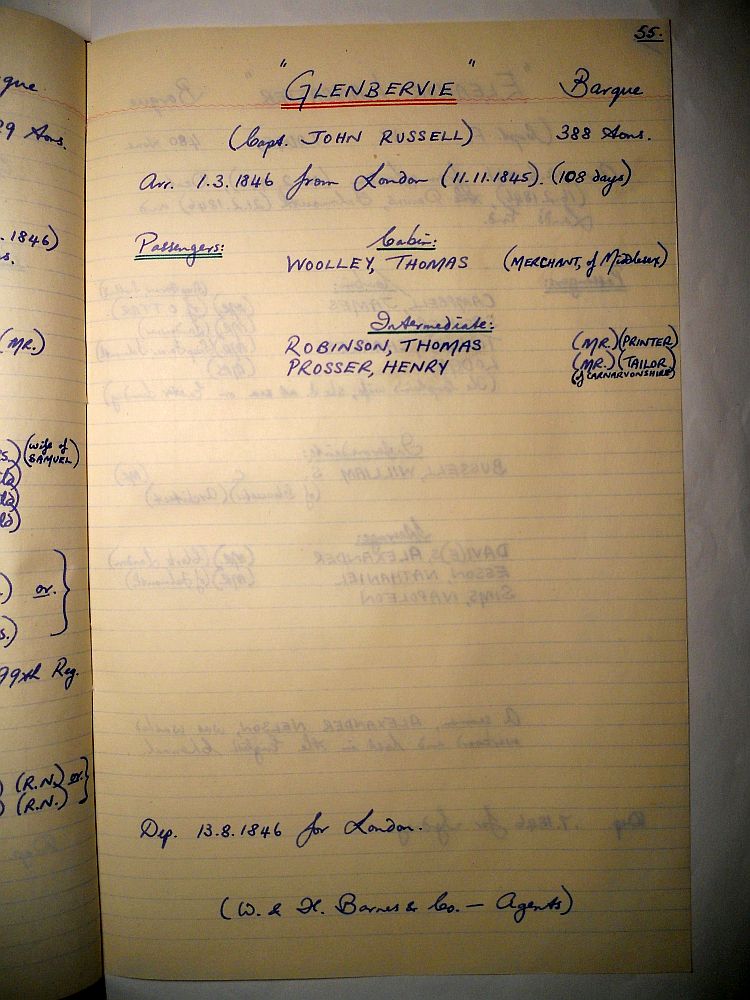 55.
"GLENBERVIE" Barque
(Capt. JOHN RUSSELL) 388 tons.
Arr. 1.3.1846 from London (11.11.1845). (108 days)
Passengers: Cabin:
WOOLLEY, THOMAS (MERCHANT, of Middlesex)
Intermediate:
ROBINSON, THOMAS (MR.) (PRINTER)
PROSSER, HENRY (MR.) (TAILOR)
(of CARNARVONSHIRE)
Dep. 13.8.1846 for London.
(W. & H. Barnes & Co. — Agents)
9 tons.
. 1846)
(MR.)
(wife of
SAMUEL)
or.
99th Reg.
(R.N.) or.
(R.N.)